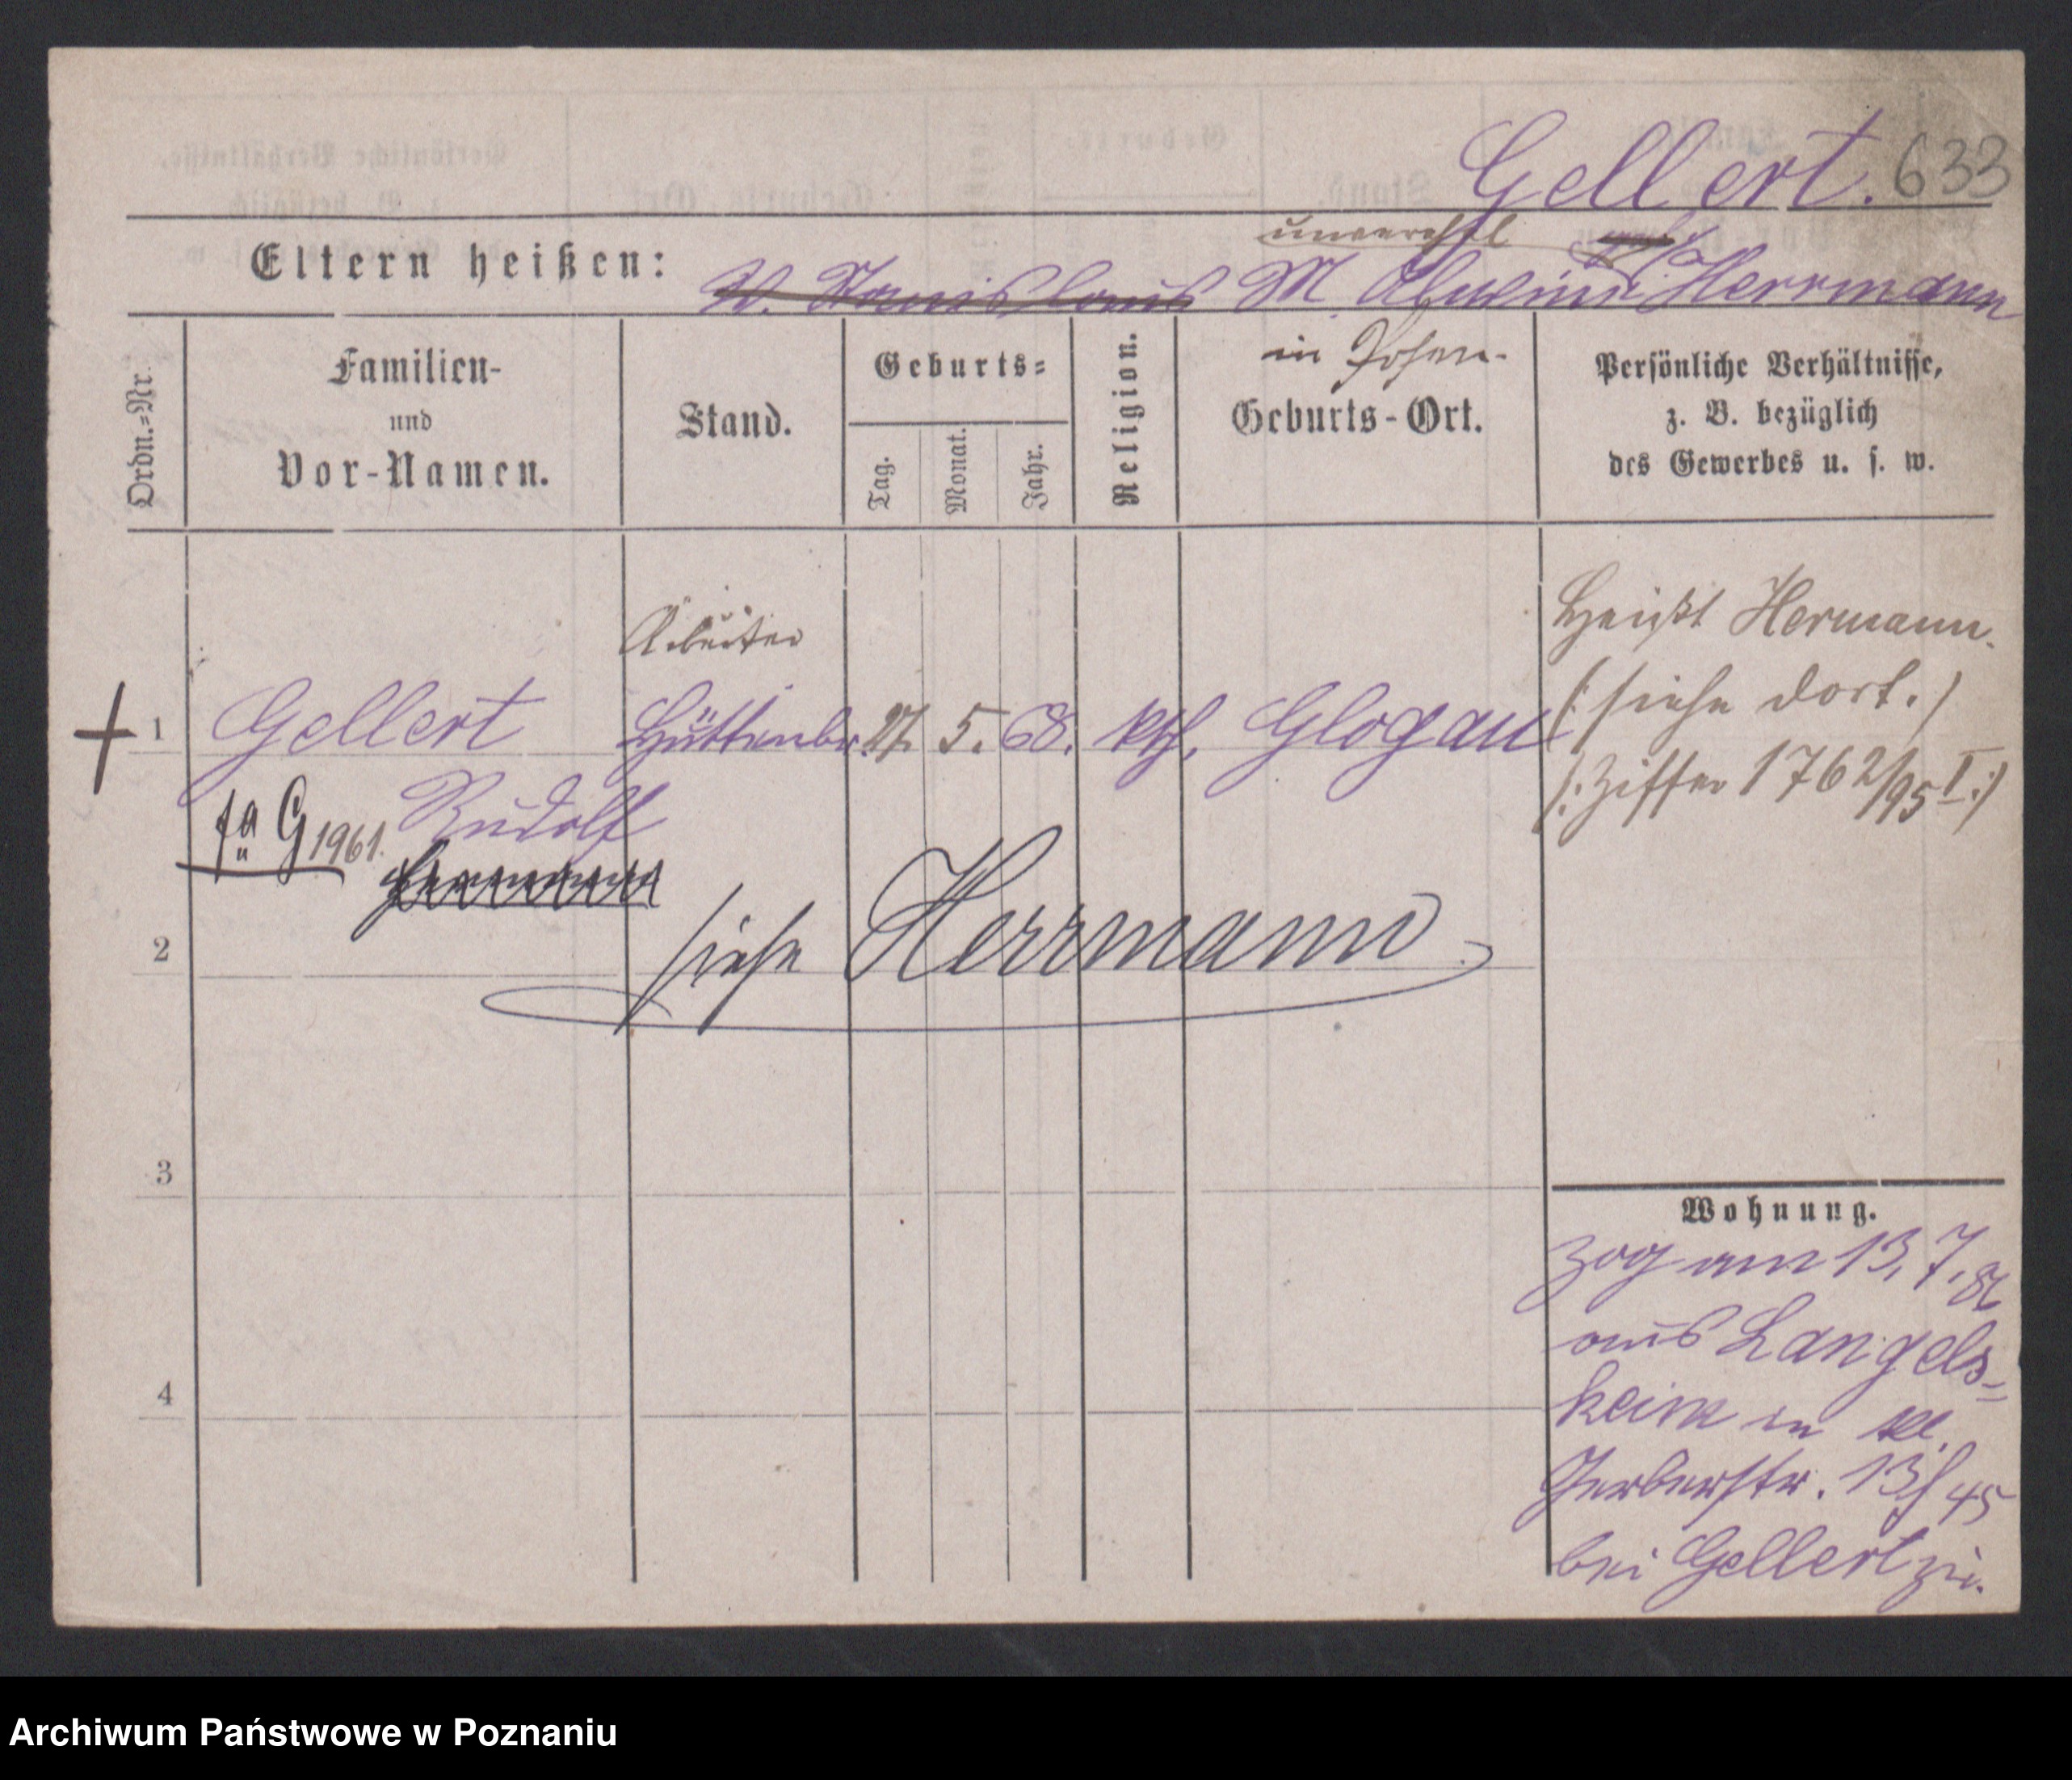 Gellert. 633
unverehel
Eltern heißen: V. Stanislaus M. Alwine Herrmann
in Posen.
Ordn.-Nr.
Familien-
und
Vor-Namen.
Stand.
Geburts-
Tag.
Monat.
Jahr.
Religion.
Geburts-Ort.
Persönliche Verhältnisse,
z. B. bezüglich
des Gewerbes u. s. w.
Arbeiter
1 Gellert 27. 5. 68. kth. Glogau
Rudolf
G 1961.
Heißt Hermann.
(: siehe dort. )
(: Ziffer 1762/95 I :)
siehe Herrmann
2
3
4
Wohnung.
Zog am 13. 7. 86
aus Langels-
heim in kl.
Gerberstr. 13/45
bei Gellert zu.
Archiwum Państwowe w Poznaniu